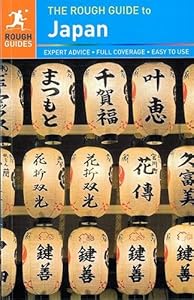 ROUGH
GUIDES
THE ROUGH GUIDE to
Japan
EXPERT ADVICE • FULL COVERAGE • EASY TO USE
まつもと
千賀福
叶恵
花折双光
花折双光
花傳
久富美
鍵善
鍵善
鍵善